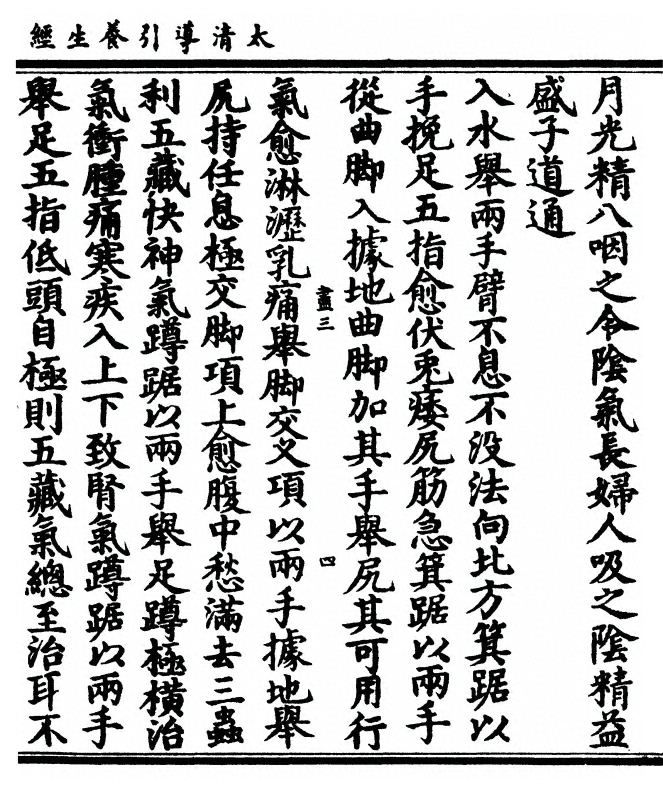 太清導引養生經
月光精八咽之令陰氣長婦人吸之陰精益
盛子道通
入水舉兩手臂不息不没法向北方箕踞以
手挽足五指愈伏兎痿尻筋急箕踞以兩手
從曲脚入據地曲脚加其手舉尻其可用行
盡三
四
氣愈淋瀝乳痛舉脚交叉項以兩手據地舉
尻持任息極交脚項上愈腹中愁滿去三蟲
利五藏快神氣蹲踞以兩手舉足蹲極橫治
氣衝腫痛寒疾入上下致腎氣蹲踞以兩手
舉足五指低頭自極則五藏氣總至治耳不